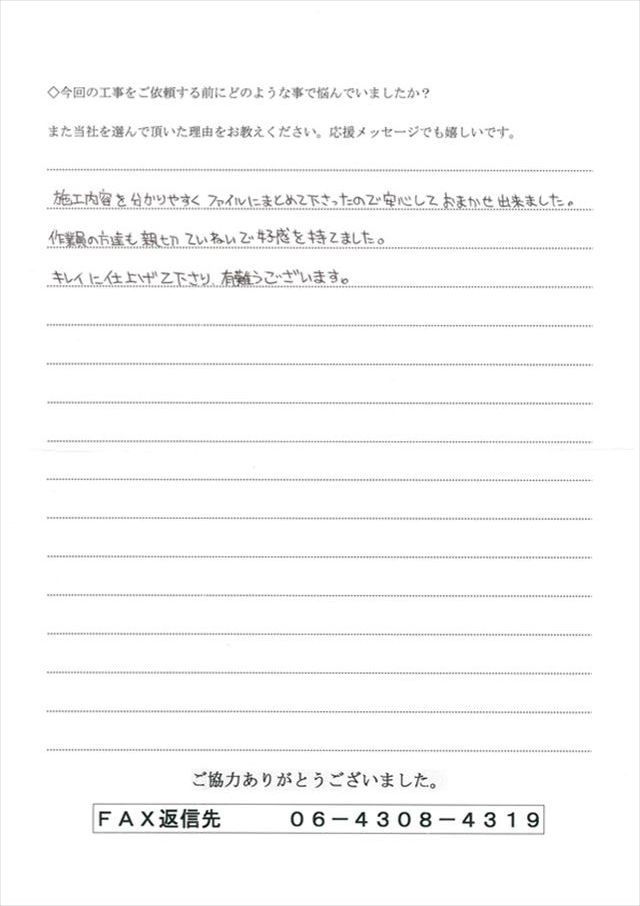 ◇今回の工事をご依頼する前にどのような事で悩んでいましたか？
また当社を選んで頂いた理由をお教えください。応援メッセージでも嬉しいです。
施工内容を分かりやすくファイルにまとめて下さったので安心しておまかせ出来ました。
作業員の方達も親切ていねいで好感を持てました。
キレイに仕上げて下さり、有難うございます。
ご協力ありがとうございました。
ＦＡＸ返信先　０６－４３０８－４３１９